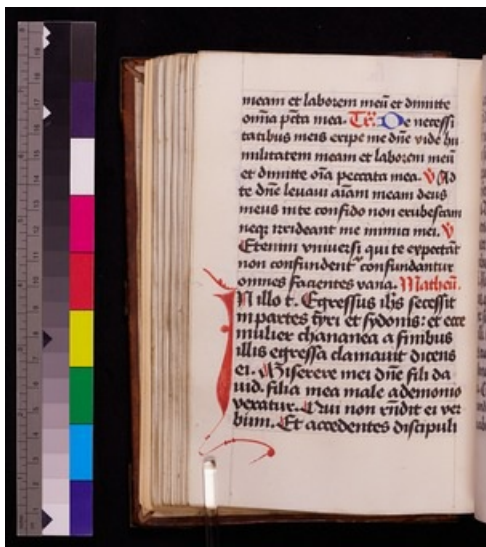 meam et laborem meū et dimitte
om̄ia pc̄ta mea. Tr̄. De necessi
tatibus meis eripe me dn̄e vide hu
militatem meam et laborem meū
et dimitte oīa peccata mea. V Ad
te dn̄e levavi aīam meam deus
meus in te confido non erubescam
neqꝫ irrideant me inimici mei. V
Etenim vniuersi qui te expectāt
non confundent᷑ confundantur
omnes facientes vana. Matheū.
In illo t. Egressus ih̄s secessit
in partes tyri et sydonis: et ecce
mulier chananea a finibus
illis egressa clamauit dicens
ei. Miserere mei dn̄e fili da
uid. filia mea male a demonio
vexatur. Qui non rn̄dit ei ver
bum. Et accedentes discipuli